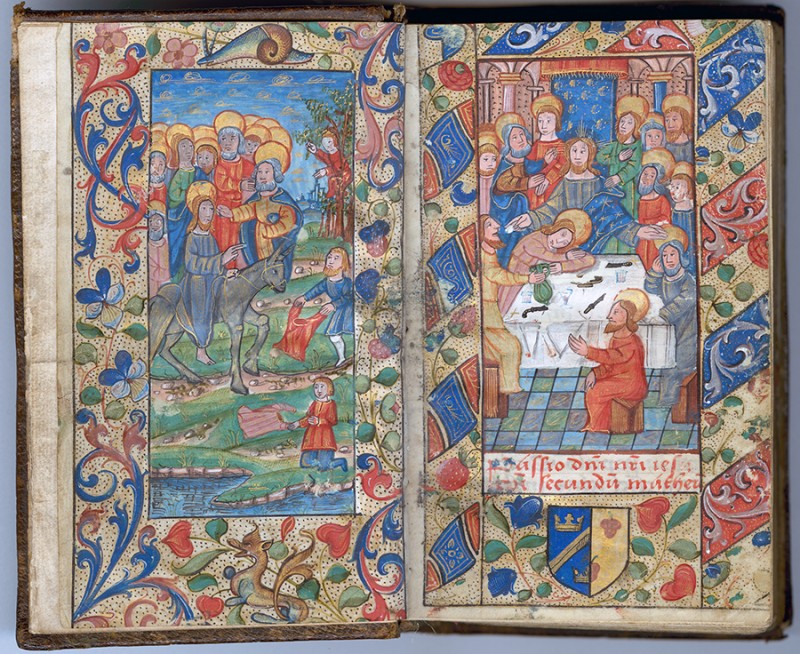 Passio dñi nr̃i ies
secundũ matheu